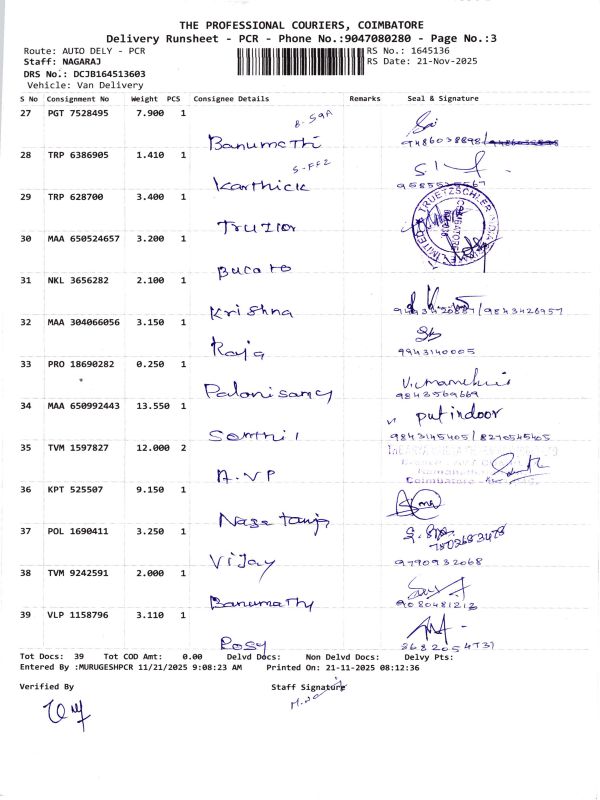 THE PROFESSIONAL COURIERS, COIMBATORE
Delivery Runsheet - PCR - Phone No.:9047080280 - Page No.:3
Route: AUTO DELY - PCR RS No.: 1645136
Staff: NAGARAJ RS Date: 21-Nov-2025
DRS No.: DCJB164513603
Vehicle: Van Delivery
S No Consignment No Weight PCS Consignee Details Remarks Seal & Signature
27 PGT 7528495 7.900 1
B-59A
Banumathi 9486038898
28 TRP 6386905 1.410 1
S-FF2
Karthick
29 TRP 628700 3.400 1
TRUETZSCHLER INDIA
COIMBATORE
30 MAA 650524657 3.200 1
31 NKL 3656282 2.100 1
Krishna 9843426957
32 MAA 304066056 3.150 1
Raja 9943140005
33 PRO 18690282 0.250 1
*
Palanisamy 9843569669
34 MAA 650992443 13.550 1 put indoor
Senthil
35 TVM 1597827 12.000 2
A.VP Coimbatore
36 KPT 525507 9.150 1
37 POL 1690411 3.250 1
Vijay 9790932068
38 TVM 9242591 2.000 1
Banumathy 9080481212
39 VLP 1158796 3.110 1
Rosy
Tot Docs: 39 Tot COD Amt: 0.00 Delvd Docs: Non Delvd Docs: Delvy Pts:
Entered By :MURUGESHPCR 11/21/2025 9:08:23 AM Printed On: 21-11-2025 08:12:36
Verified By Staff Signature